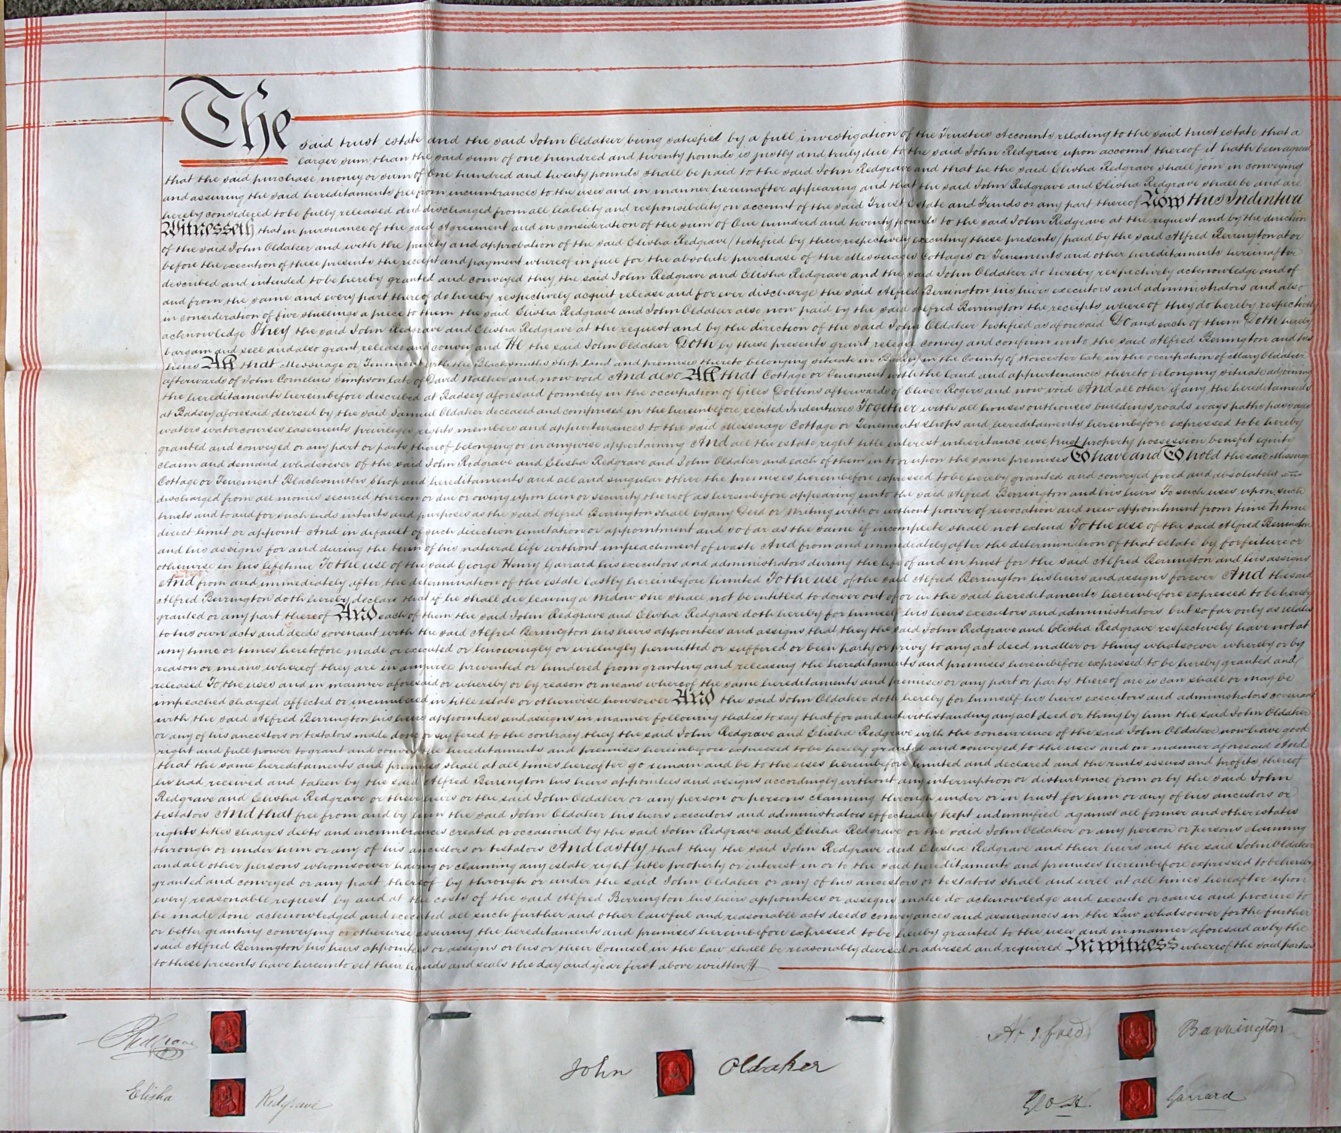 The said trust estate and the said John Oldaker being satisfied by a full investigation of the Trustees Accounts relating to the said trust estate that a
larger sum than the said sum of one hundred and twenty pounds is justly and truly due to the said John Redgrave upon account thereof it hath been agreed
that the said purchase money or sum of One hundred and twenty pounds shall be paid to the said John Redgrave and that he the said Elisha Redgrave shall join in conveying
and assuring the said hereditaments free from incumbrances to the uses and in manner hereinafter appearing and that the said John Redgrave and Elisha Redgrave shall be and are
hereby considered to be fully released and discharged from all liability and responsibility on account of the said Trust Estate and Funds or any part thereof Now this Indenture
Witnesseth that in pursuance of the said Agreement and in consideration of the sum of One hundred and twenty pounds to the said John Redgrave at the request and by the direction
of the said John Oldaker and with the privity and approbation of the said Elisha Redgrave (testified by their respectively executing these presents) paid by the said Alfred Berrington at or
before the execution of these presents the receipt and payment whereof in full for the absolute purchase of the Messuages Cottages or Tenements and other hereditaments hereinafter
described and intended to be hereby granted and conveyed they the said John Redgrave and Elisha Redgrave and the said John Oldaker do hereby respectively acknowledge and of
and from the same and every part thereof do hereby respectively acquit release and for ever discharge the said Alfred Berrington his heirs executors and administrators and also
in consideration of five shillings a piece to them the said Elisha Redgrave and John Oldaker also now paid by the said Alfred Berrington the receipts whereof they do hereby respectively
acknowledge They the said John Redgrave and Elisha Redgrave at the request and by the direction of the said John Oldaker testified as aforesaid Do and each of them Doth hereby
bargain and sell and also grant release and convey and He the said John Oldaker Doth by these presents grant release convey and confirm unto the said Alfred Berrington and his
heirs All that Messuage or Tenement with the Blacksmiths Shop Land and premises thereto belonging situate in Badsey in the County of Worcester late in the occupation of Mary Oldaker
afterwards of John Cornelius Simpson late of David Walker and now void And also All that Cottage or Tenement with the Land and appurtenances thereto belonging situate adjoining
the hereditaments hereinbefore described at Badsey aforesaid formerly in the occupation of Giles Dobbins afterwards of Oliver Rogers and now void And all other if any the hereditaments
at Badsey aforesaid devised by the said Samuel Oldaker deceased and comprised in the hereinbefore recited Indentures Together with all houses outhouses buildings roads ways paths passages
waters watercourses easements privileges rights members and appurtenances to the said Messuage Cottage or Tenements Shops and hereditaments hereinbefore expressed to be hereby
granted and conveyed or any part or parts thereof belonging or in anywise appertaining And all the estate right title interest inheritance use trust property possession benefit equity
claim and demand whatsoever of the said John Redgrave and Elisha Redgrave and John Oldaker and each of them in to or upon the same premises To have and To hold the said Messuage
Cottage or Tenement Blacksmiths Shop and hereditaments and all and singular other the premises hereinbefore expressed to be hereby granted and conveyed freed and absolutely
discharged from all monies secured thereon or due or owing upon lien or security thereof as hereinbefore appearing unto the said Alfred Berrington and his heirs To such uses upon such
trusts and to and for such ends intents and purposes as the said Alfred Berrington shall by any Deed or Writing with or without power of revocation and new appointment from time to time
direct limit or appoint And in default of such direction limitation or appointment and so far as the same if incomplete shall not extend To the use of the said Alfred Berrington
and his assigns for and during the term of his natural life without impeachment of waste And from and immediately after the determination of that estate by forfeiture or
otherwise in his lifetime To the use of the said George Henry Garrard his executors and administrators during the life of and in trust for the said Alfred Berrington and his assigns
And from and immediately after the determination of the estate lastly hereinbefore limited To the use of the said Alfred Berrington his heirs and assigns forever And the said
Alfred Berrington doth hereby declare that if he shall die leaving a Widow she shall not be entitled to dower out of or in the said hereditaments hereinbefore expressed to be hereby
granted or any part thereof And each of them the said John Redgrave and Elisha Redgrave doth hereby for himself his heirs executors and administrators but so far only as relates
to his own acts and deeds covenant with the said Alfred Berrington his heirs appointees and assigns that they the said John Redgrave and Elisha Redgrave respectively have not at
any time or times heretofore made or executed or knowingly or willingly permitted or suffered or been party or privy to any act deed matter or thing whatsoever whereby or by
reason or means whereof they are in anywise prevented or hindered from granting and releasing the hereditaments and premises hereinbefore expressed to be hereby granted and
released To the uses and in manner aforesaid or whereby or by reason or means whereof the same hereditaments and premises or any part or parts thereof are is can shall or may be
impeached charged affected or incumbered in title estate or otherwise howsoever And the said John Oldaker doth hereby for himself his heirs executors and administrators covenant
with the said Alfred Berrington his heirs appointees and assigns in manner following that is to say that for and notwithstanding any act deed or thing by him the said John Oldaker
or any of his ancestors or testators made done or suffered to the contrary they the said John Redgrave and Elisha Redgrave with the concurrence of the said John Oldaker now have good
right and full power to grant and convey the hereditaments and premises hereinbefore expressed to be hereby granted and conveyed to the uses and in manner aforesaid And
that the same hereditaments and premises shall at all times hereafter go remain and be to the uses hereinbefore limited and declared and the rents issues and profits thereof
be had received and taken by the said Alfred Berrington his heirs appointees and assigns accordingly without any interruption or disturbance from or by the said John
Redgrave and Elisha Redgrave or their heirs or the said John Oldaker or any person or persons claiming through under or in trust for him or any of his ancestors or
testators And that free from and by him the said John Oldaker his heirs executors and administrators effectually kept indemnified against all former and other estates
rights titles charges debts and incumbrances created or occasioned by the said John Redgrave and Elisha Redgrave or the said John Oldaker or any person or persons claiming
through or under him or any of his ancestors or testators And lastly that they the said John Redgrave and Elisha Redgrave and their heirs and the said John Oldaker
and all other persons whomsoever having or claiming any estate right title property or interest in or to the said hereditaments and premises hereinbefore expressed to be hereby
granted and conveyed or any part thereof by through or under the said John Oldaker or any of his ancestors or testators shall and will at all times hereafter upon
every reasonable request by and at the costs of the said Alfred Berrington his heirs appointees or assigns make do acknowledge and execute or cause and procure to
be made done acknowledged and executed all such further and other lawful and reasonable acts deeds conveyances and assurances in the Law whatsoever for the further
or better granting conveying or otherwise assuring the hereditaments and premises hereinbefore expressed to be hereby granted to the uses and in manner aforesaid as by the
said Alfred Berrington his heirs appointees or assigns or his or their Counsel in the law shall be reasonably devised or advised and required In witness whereof the said parties
to these presents have hereunto set their hands and seals the day and year first above written
Redgrave
Elisha Redgrave
John Oldaker
Alfred Barrington
Geo H. Garrard